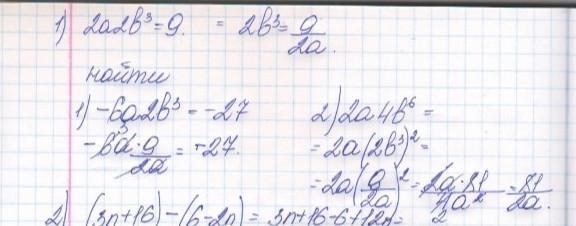 1) 2a2b³ = 9. = 2b³ = 9/2a.
найти
1) -6a2b³ = -27
-6a · 9/2a = -27.
2) 2a4b⁶ =
= 2a(2b³)² =
= 2a(9/2a)² = 2a·81/4a² = 81/2a.
2) (3n+16) - (6-2n) = 3n+16-6+12n=